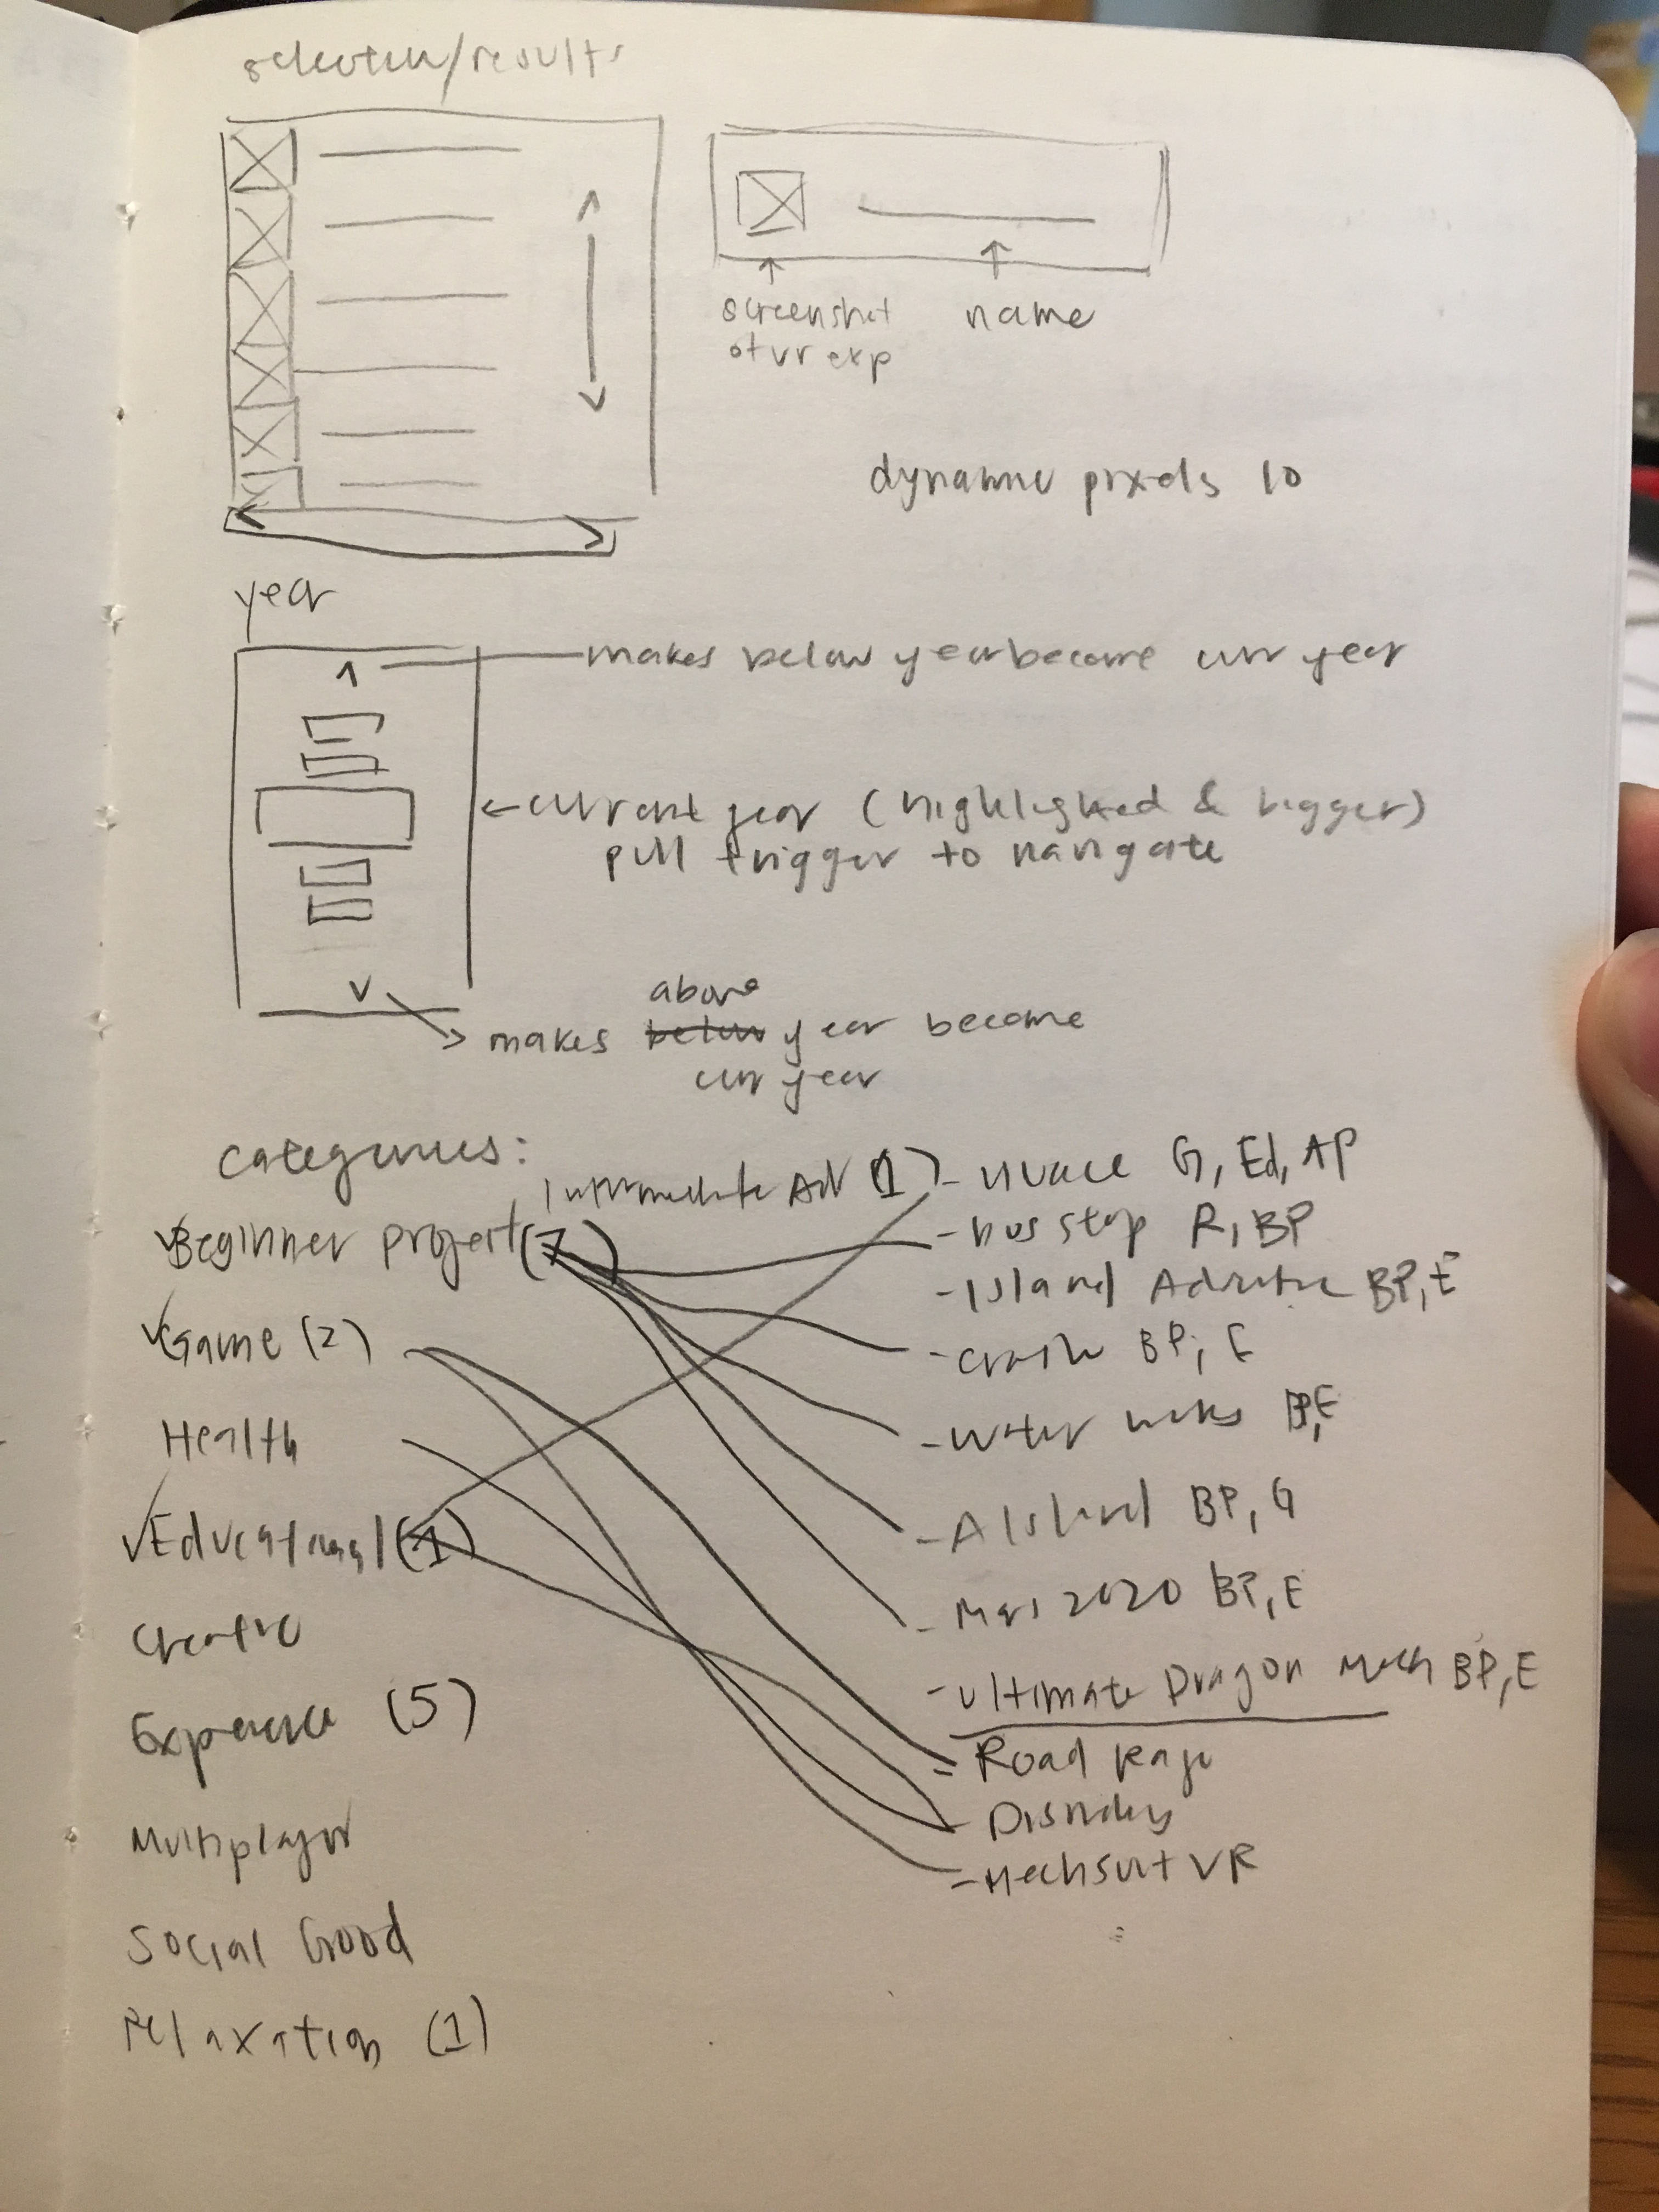 selection/results
screenshot
of vr exp
name
dynamic pixels 10
year
makes below year become curr year
current year (highlighted & bigger)
pull trigger to navigate
above
makes below year become
curr year
categories:
Intermediate Adv (1)
- G, Ed, AP
Beginner project (7)
- bus stop R, BP
- Island Adventure BP, E
Game (2)
- crash BP, E
Health
- Water works BP, E
Educational (1)
- A Island BP, G
- Mars 2020 BP, E
Creative
- Ultimate Dragon Mech BP, E
Experience (5)
- Road Rage
- Disney
Multiplayer
- Mechsuit VR
Social Good
Relaxation (1)